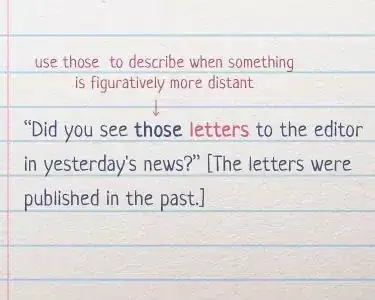 use those to describe when something
is figuratively more distant
“Did you see those letters to the editor
in yesterday's news?” [The letters were
published in the past.]